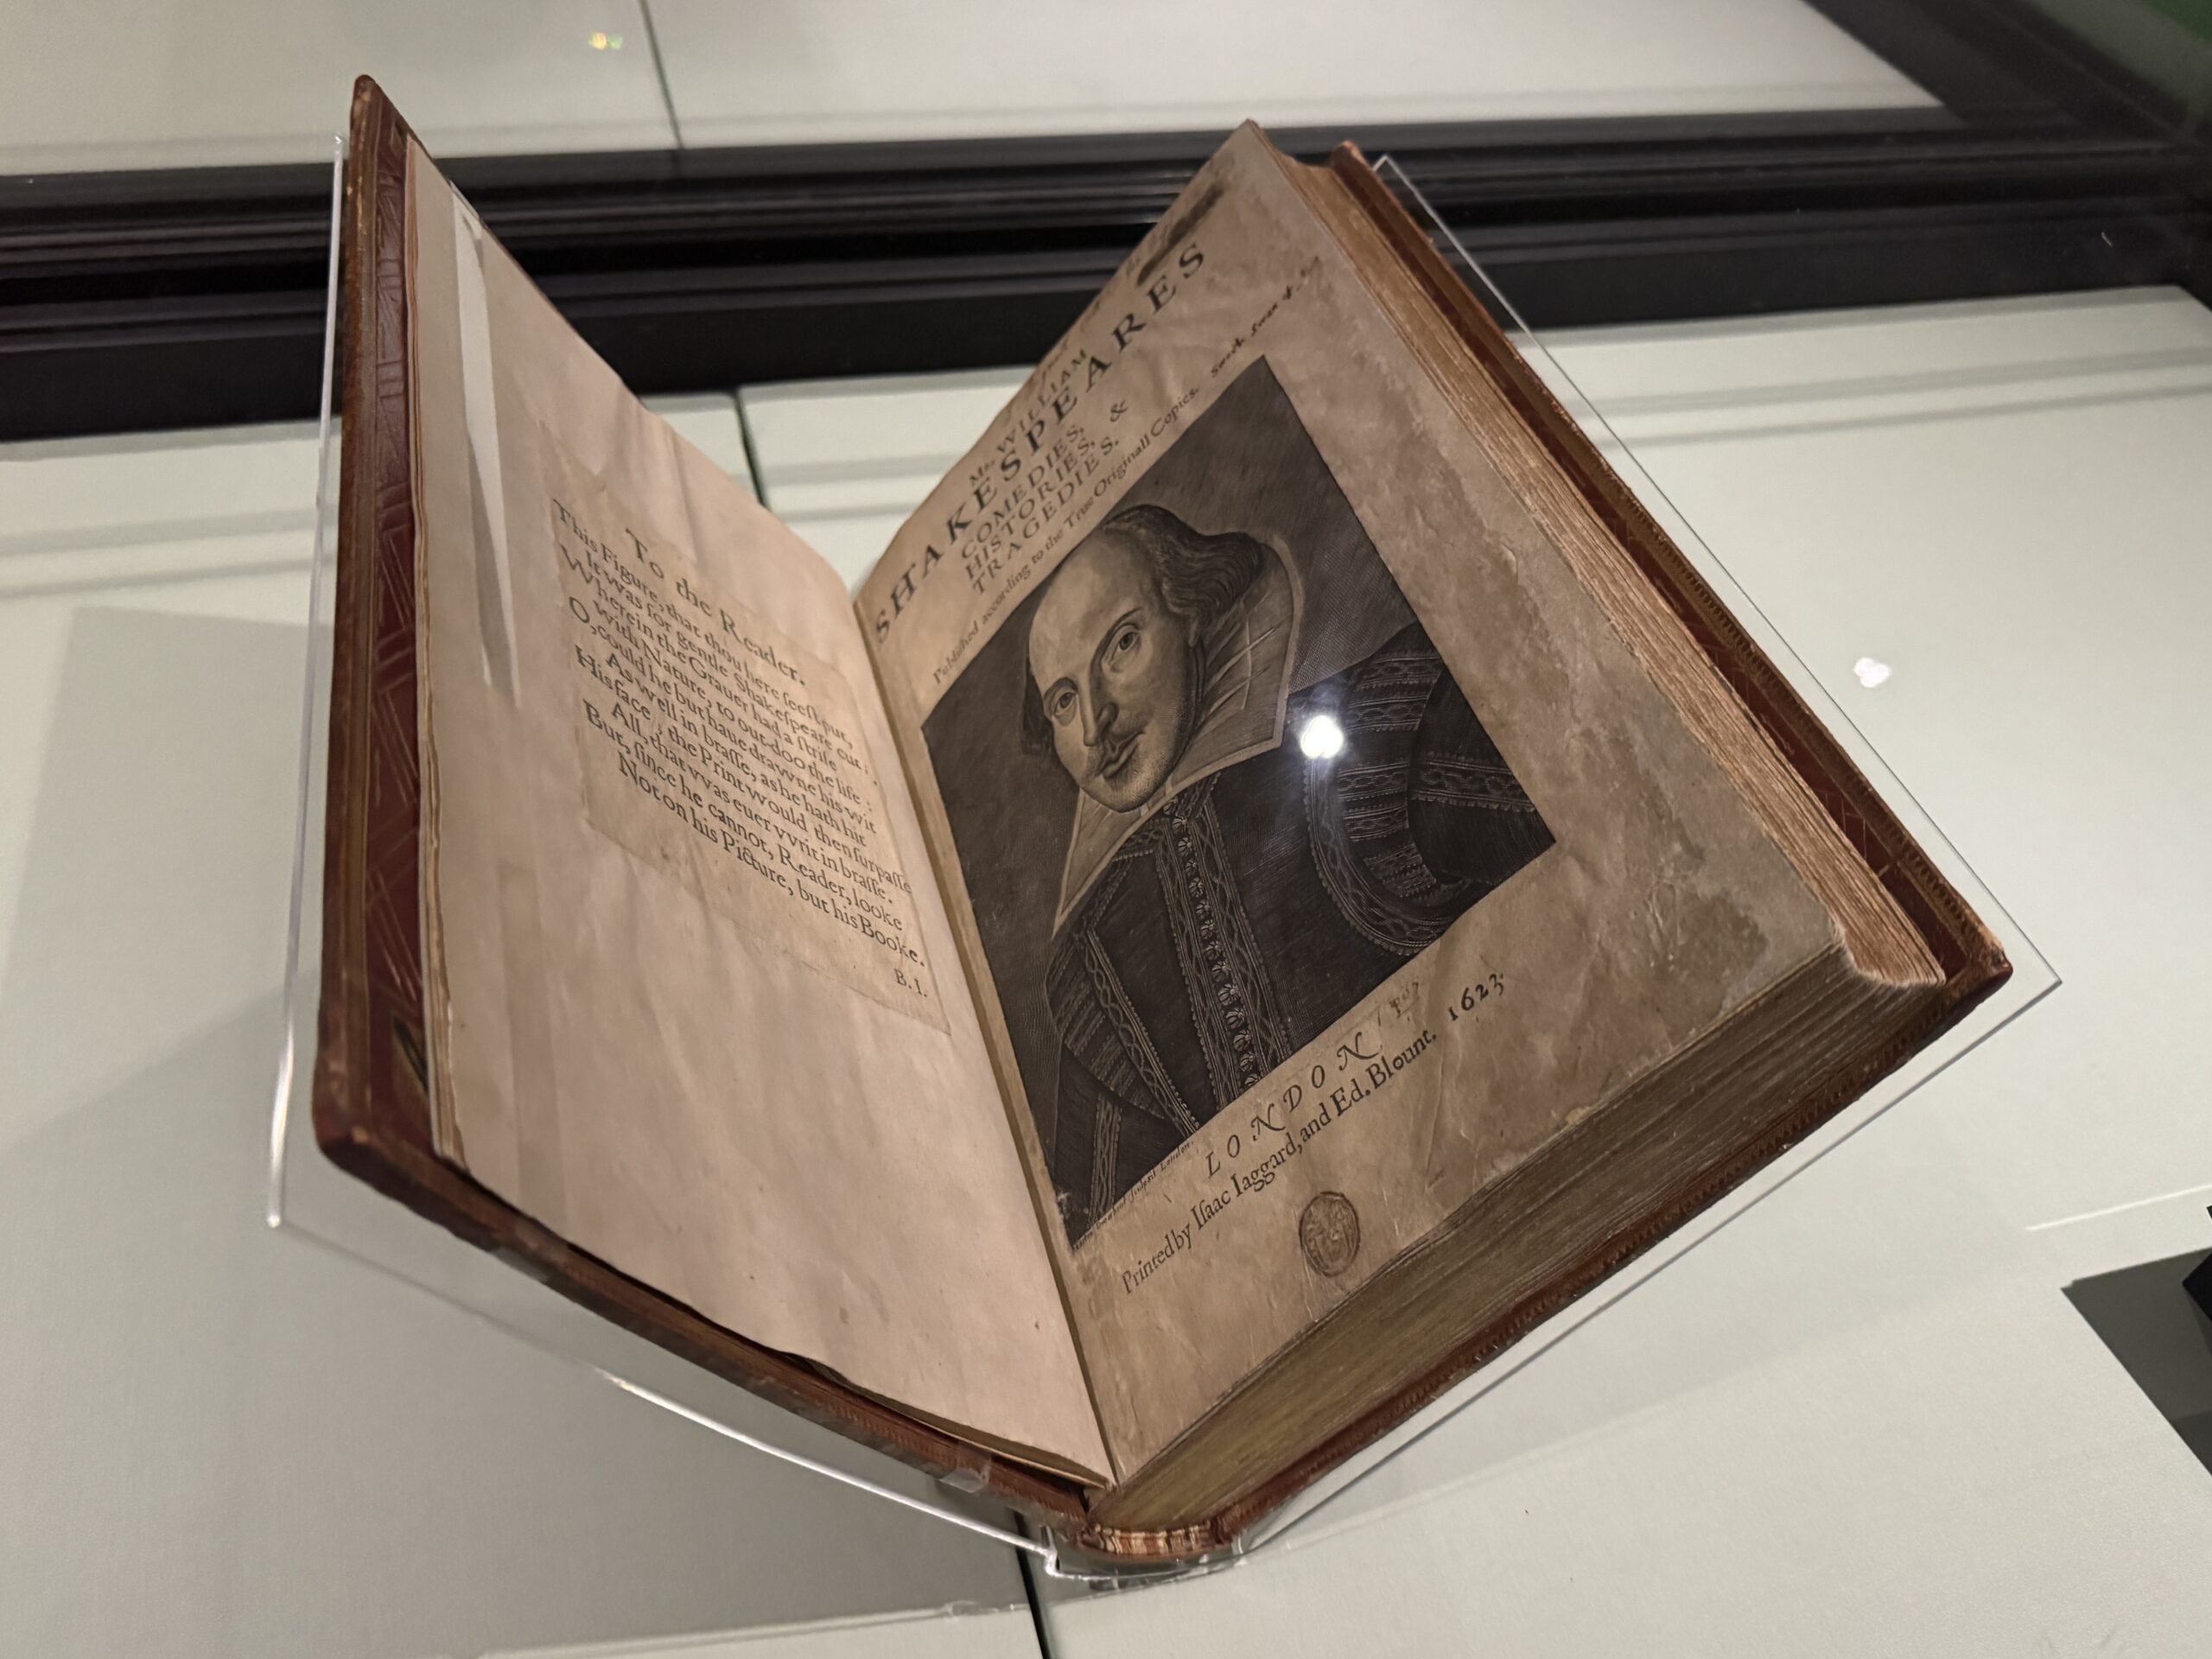 To the Reader.
This Figure, that thou here seest put,
It was for gentle Shakespeare cut;
Wherein the Grauer had a strife
with Nature, to out-doo the life :
O, could he but haue drawne his wit
As well in brasse, as he hath hit
His face ; the Print would then surpasse
All, that vvas euer vvrit in brasse.
But, since he cannot, Reader, looke
Not on his Picture, but his Booke.
B. I.
Mr. WILLIAM
SHAKESPEARES
COMEDIES,
HISTORIES, &
TRAGEDIES.
Published according to the True Originall Copies.
sculpsit London.
LONDON
Printed by Isaac Iaggard, and Ed. Blount. 1623.